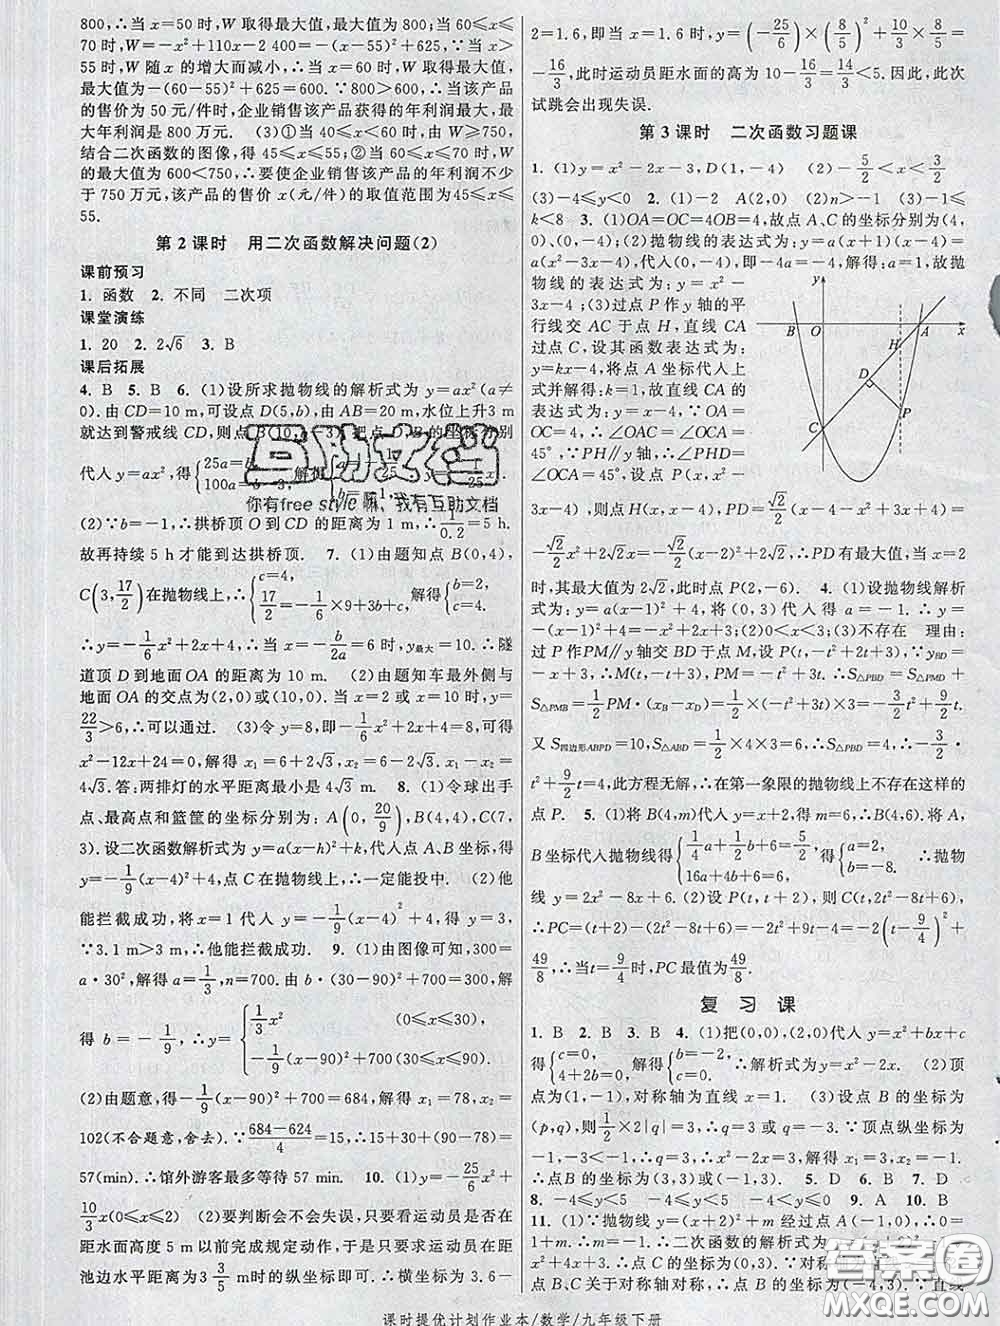 800,∴当 x=50 时,W 取得最大值,最大值为 800;当 60≤x≤
70 时,W=-x²+110x-2 400=-(x-55)²+625,∵当 x>
55 时,W 随 x 的增大而减小,∴当 x=60 时,W 取得最大值,
最大值为-(60-55)²+625=600.∵800>600,∴当该产品
的售价为 50 元/件时,企业销售该产品获得的年利润最大,最
大年利润是 800 万元. (3)①当 40≤x≤60 时,由 W≥750,
结合二次函数的图像,得 45≤x≤55;②当 60≤x≤70 时,W 的
最大值为 600<750,∴要使企业销售该产品的年利润不少
于 750 万元,该产品的售价 x(元/件)的取值范围为45≤x≤
55.
第 2 课时 用二次函数解决问题(2)
课前预习
1. 函数 2. 不同 二次项
课堂演练
1. 20 2. 2√6 3. B
课后拓展
4. B 5. B 6. (1)设所求抛物线的解析式为 y=ax²(a≠
0).由 CD=10 m,可设点 D(5,b),由 AB=20 m,水位上升3 m
就达到警戒线 CD,则点 B(10,b-3),把点 D、B 的坐标分别
代入 y=ax²,得{25a=b, 100a=b-3,解得
互助文档
你有free style嘛、我有互助文档
(2)∵b=-1,∴拱桥顶 O 到 CD 的距离为 1 m,∴1/0.2=5 h.
故再持续 5 h 才能到达拱桥顶. 7. (1)由题知点 B(0,4),
C(3,17/2)在抛物线上,∴{c=4, 17/2=-1/6×9+3b+c,解得{b=2, c=4.
∴y=-1/6x²+2x+4,∴当 x=-b/2a=6 时,y最大=10.∴隧
道顶 D 到地面 OA 的距离为 10 m. (2)由题知车最外侧与
地面 OA 的交点为(2,0)或(10,0).当 x=2 或 x=10 时,y=
22/3>6,∴可以通过. (3)令 y=8,即-1/6x²+2x+4=8,可得
x²-12x+24=0,解得 x₁=6+2√3,x₂=6-2√3,x₁-x₂=
4√3.答:两排灯的水平距离最小是 4√3 m. 8. (1)令球出手
点、最高点和篮筐的坐标分别为:A(0,20/9),B(4,4),C(7,
3).设二次函数解析式为 y=a(x-h)²+k,代入点 A、B 坐标,得
y=-1/9(x-4)²+4,点 C 在抛物线上,∴一定能投中. (2)他
能拦截成功,将 x=1 代入 y=-1/9(x-4)²+4,得 y=3,
∵3.1 m>3 m,∴他能拦截成功. 9. (1)由图像可知,300=
a·30²,解得 a=1/3,n=700.由 b·(30-90)²+700=300,解
得 b=-1/9,∴y={1/3x² (0≤x≤30), -1/9(x-90)²+700(30≤x≤90).
(2)由题意,得-1/9(x-90)²+700=684,解得 x₁=78,x₂=
102(不合题意,舍去).∵(684-624)/4=15,∴15+30+(90-78)=
57(min).∴馆外游客最多等待 57 min. 10. (1)y=-25/6x²+
10/3x(0≤x≤2) (2)要判断会不会失误,只要看运动员是否在
距水面高度 5 m以前完成规定动作,于是只要求运动员在距
池边水平距离为3 3/5 m时的纵坐标即可.∴横坐标为 3.6-
2=1.6,即当 x=1.6 时,y=(-25/6)×(8/5)²+10/3×8/5=
-16/3,此时运动员距水面的高为 10-16/3=14/3<5.因此,此次
试跳会出现失误.
第 3 课时 二次函数习题课
1. (1)y=x²-2x-3,D(1,-4) (2)-5/2<x<3/2
(3)-4≤y<0 2. (1)-2 A(2,0) (2)n>-1 (3)-1≤
k<8 3. (1)OA=OC=4OB=4,故点 A、C 的坐标分别为(4,
0)、(0,-4). (2)抛物线的表达式为:y=a(x+1)(x-4)=
a(x²-3x-4),代入(0,-4),即-4a=-4,解得:a=1,故抛
物线的表达式为:y=x²-
3x-4;(3)过点 P 作 y 轴的平
行线交 AC 于点 H,直线 CA
过点 C,设其函数表达式为:
y=kx-4,将点 A 坐标代入上
式并解得:k=1,故直线 CA 的
表达式为:y=x-4,∵OA=
OC=4,∴∠OAC=∠OCA=
45°,∵PH∥y 轴,∴∠PHD=
∠OCA=45°,设点 P(x,x²-
3x-4),则点 H(x,x-4),PD=√2/2(x-4-x²+3x+4)=
-√2/2x²+2√2x=-√2/2(x-2)²+2√2,∴PD有最大值,当 x=2
时,其最大值为 2√2,此时点 P(2,-6). 4. (1)设抛物线解析
式为:y=a(x-1)²+4,将(0,3)代入得 a=-1.∴y=
-(x-1)²+4=-x²+2x+3;(2)0<x<3;(3)不存在 理由:
过 P 作PM∥y 轴交 BD 于点 M,设 P(t,-t²+2t+3),∵y_BD=
-x+3,∴M(t,-t+3),PM=-t²+3t,∴S△PBD=S△PMD+
S△PMB=1/2PM·(x_B-x_D)=1/2×(-t²+3t)×3=-3/2t²+9/2t.
又 S四边形ABPD=10,S△ABD=1/2×4×3=6,∴S△PBD=4,∴-3/2·
t²+9/2t=4,此方程无解,∴在第一象限的抛物线上不存在这样的
点 P. 5. (1)将 B(4,m)代入 y=x+2,得 m=6,∴B(4,6).将 A、
B 坐标代入抛物线得{1/4a+1/2b+6=5/2, 16a+4b+6=6,得{a=2, b=-8.∴抛物
线 y=2x²-8x+6; (2)设 P(t,t+2),则 C(t,2t²-8t+6),
∴PC=(t+2)-(2t²-8t+6)=-2t²+9t-4=-2(t-9/4)²+
49/8,∴当t=9/4时,PC最值为49/8.
复 习 课
1. B 2. B 3. B 4. (1)把(0,0),(2,0)代入 y=x²+bx+c
得{c=0, 4+2b=0,解得{b=-2, c=0,∴解析式为 y=x²-2x. (2)顶
点为(1,-1),对称轴为直线 x=1. (3)设点 B 的坐标为
(p,q),则1/2×2|q|=3,∴q=3或 q=-3.∵顶点纵坐标为
-1,-3<-1,∴q=3,∴x²-2x=3,解得 x₁=3,x₂=-1,
∴点B的坐标为(3,3)或(-1,3). 5. D 6. B 7. D
8. -4≤y≤5 -4≤y≤5 9. A 10. B
11. (1)∵抛物线 y=(x+2)²+m 经过点 A(-1,0),∴0=
1+m,∴m=-1,∴二次函数的解析式为 y=(x+2)²-1=
x²+4x+3,∴点 C 的坐标为(0,3),∵对称轴为 x=-2,
点 B,C关于对称轴对称,∴点 B的坐标为(-4,3).∵直线
y
B
O
A
x
H
D
P
C
答案圈
课时提优计划作业本/数学/九年级下册